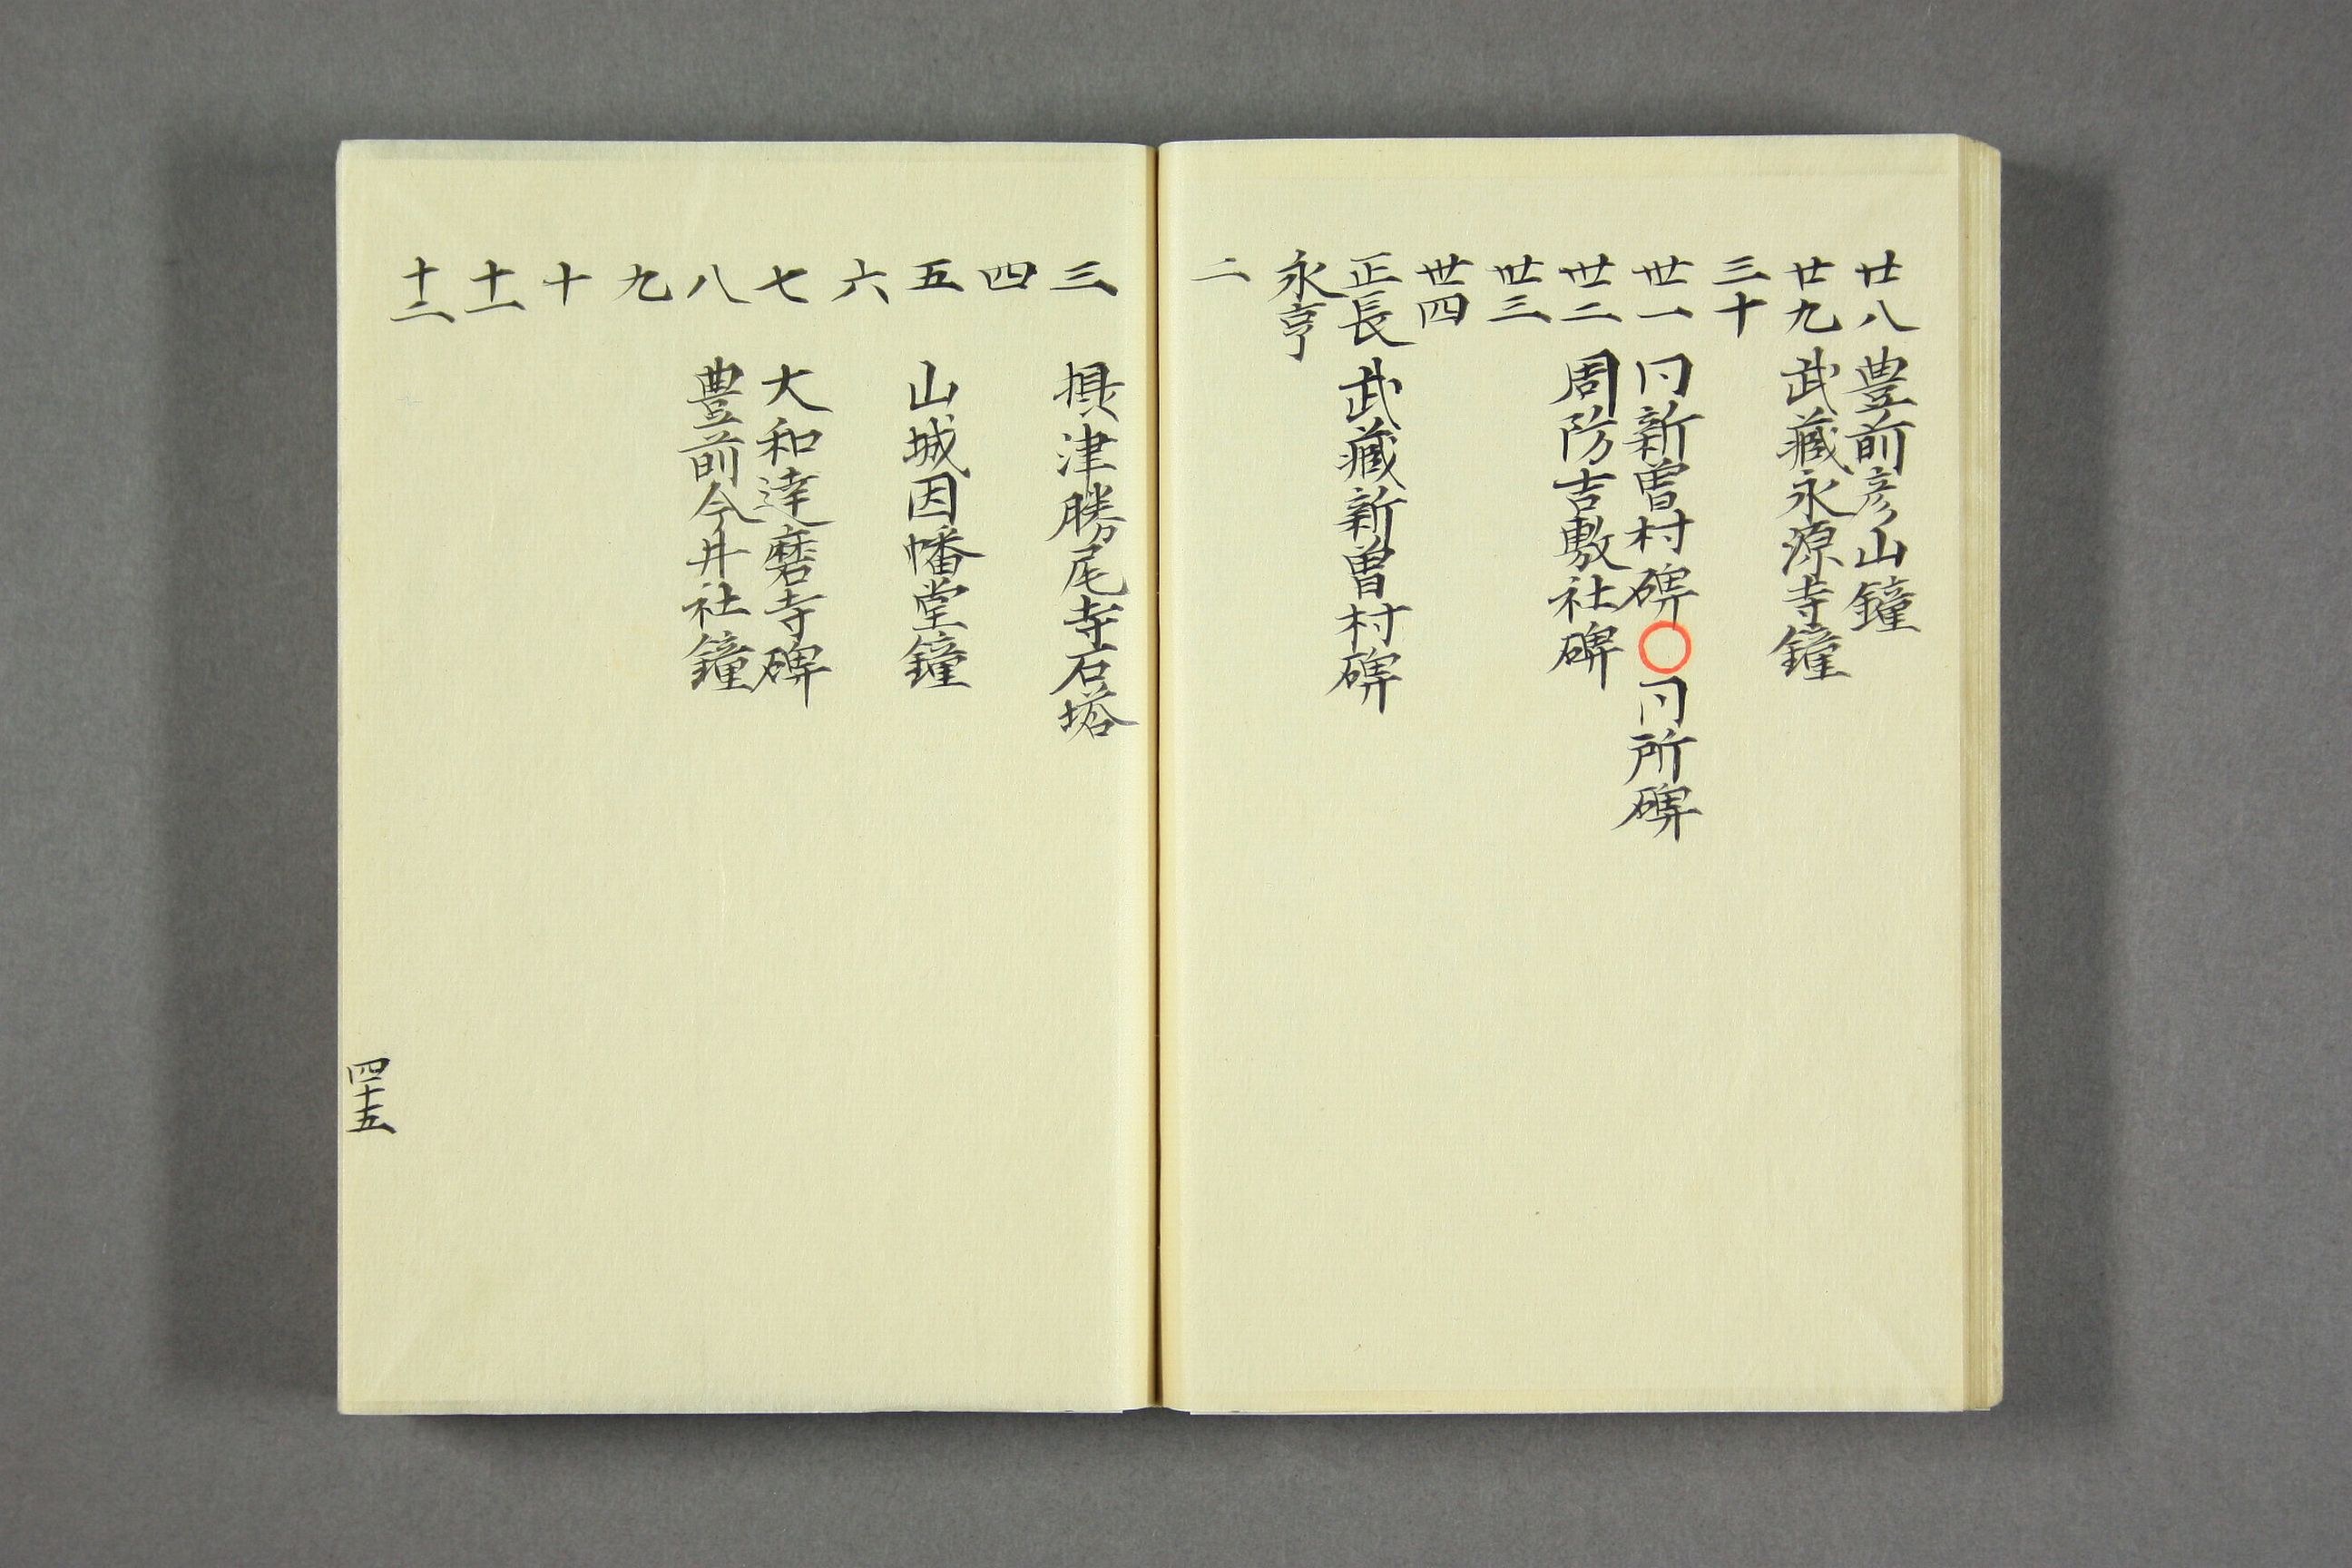 廿八 豊前彦山鐘
廿九 武蔵永源寺鐘
三十
丗一 同新曽村碑〇同所碑
丗二 周防吉敷社碑
丗三
丗四
正長 武蔵新曽村碑
永享
二
三 摂津勝尾寺石塔
四
五 山城因幡堂鐘
六
七 大和達磨寺碑
八 豊前今井社鐘
九
十
十一
十二
四十五